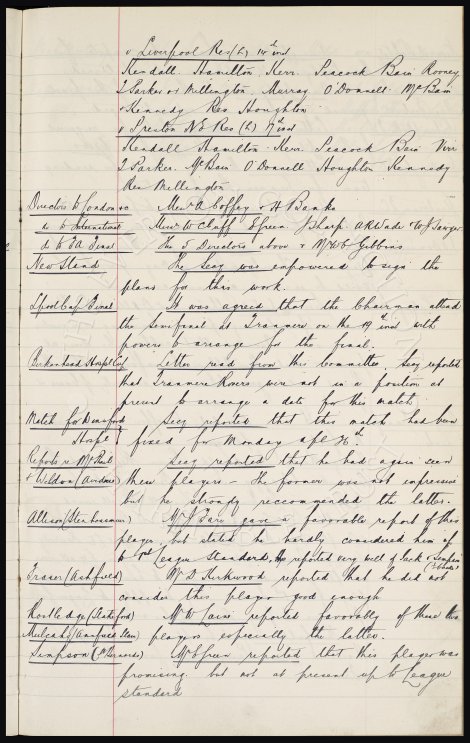 v Liverpool Res (L) 14th inst
Kendall. Hamilton. Kerr. Peacock Bain Rooney
J Parker or Millington. Murray. O'Donnell. McBain
& Kennedy Res Houghton
v Preston N E Res (L) 17th inst
Kendall Hamilton. Kerr. Peacock Bain Virr
J Parker. McBain O'Donnell Houghton Kennedy
Res Millington
Directors to London &c Messrs A Coffey & H Banks
do to International Messrs W C Cuff E Green J Sharp A R Wade & W J Sawyer
do to E A Final The 5 Directors above & Mr W C Gibbins
New Stand The Secy was empowered to sign the
plans for this work.
Lpool Cup Final It was agreed that the Chairman attend
the semifinal at Tranmere on the 19th inst with
powers to arrange for the final.
Birkenhead Hospl Cup Letter read from this committee. Secy reported
that Tranmere Rovers were not in a position at
present to arrange a date for this match
Match for Secy reported that this match had been
Hospl fixed for Monday
Reports re Secy reported that he had again seen
& Weldon (Airdrie) these players - The former was not impressive
but he strongly reccommended the latter.
Allison (Stenhousemuir) gave a favorable report of this
player but stated he hardly considered him up
to 1st League Standard, he reported very well of & Simpson
Fraser (Ashfield) Mr D Kirkwood reported that he did not
consider this player good enough
Mr W reported favorably of these two
players especially the latter.
Simpson (St Bernards) Mr E Green reported that this player was
promising but not at present up to League
standard